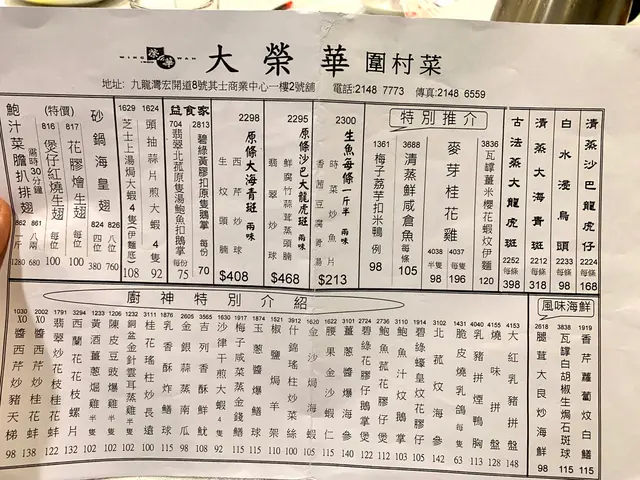 WING WAH
大榮華 圍村菜
地址: 九龍灣宏開道8號其士商業中心一樓2號舖 電話:2148 7773 傳真:2148 6559
清蒸沙巴龍虎仔 2224 每條 168
白水浸烏頭 2233 每條 98
清蒸大海青斑 2252 每條 318
古法蒸大龍虎斑 2222 每條 398
特別推介
3836 瓦罉薑米櫻花蝦蚊伊麵 120
麥芽桂花雞
4037 每隻 196
4038 半隻 98
3688 清蒸鮮咸倉魚 每條 105
1361 梅子荔芋扣米鴨 例 98
2300 生魚每條一斤半 兩味
時菜炒魚片
香茜豆腐魚湯
$213
2295 原條沙巴大龍虎斑 兩味
鮮腐竹蒜茸蒸頭腩
翡翠炒球
$468
2298 原條大海青斑 兩味
西芹炒球
生炆頭腩
$408
益食家
2813 碧綠黃膠扣原隻鵝掌 每份 70
704 翡翠北菰原隻湯鮑魚扣鵝掌 每份 75
1624 頭抽蒜片煎大蝦 4隻 92
1629 芝士上湯焗大蝦 4隻 (伊麵底) 108
砂鍋海皇翅
826 六位 760
824 四位 380
(特價)
817 花膠燴生翅 每位 100
816 煲仔紅燒生翅 每位 100
鮑汁菜膽扒排翅
需時30分鐘
861 八兩 680
862 斤 1280
風味海鮮
1919 香芹蘿蔔炆白鱔 115
3838 瓦罉白胡椒生焗石斑球 115
2618 腿茸大良炒海鮮 98
廚神特別介紹
4153 大紅乳豬拼盤 148
4155 燒味拼盤 128
4040 乳豬拼煙鴨胸 113
1431 脆皮燒乳鴿 每隻 63
3102 北菰炆海參 142
3090 碧綠蠔皇炆花膠仔 112
3110 鮑魚汁炆鵝掌 103
2736 鮑魚菰花膠仔 112
2724 碧綠花膠仔鵝掌煲 122
1341 薑蔥爆海參 140
1622 腰果金沙蝦仁 115
1620 金沙焗海蝦 103
3912 什錦瑤柱炒菜絲 100
1521 椒鹽焗羊架 110
1874 玉蔥醬爆鱔球 110
1917 梅子咸菜蒸金錢鱔 115
1630 沙律干煎大蝦 4隻 92
1565 吉列香酥鮮魷 108
2605 金銀蒜蒸南瓜 98
1918 乳香酥炸鱔球 115
3111 桂花瑤柱炒長遠 100
銅盆金針雲耳蒸雞 半隻 102
1235 陳皮豆豉爆雞 半隻 102
1233 黃酒薑蔥煀雞 半隻 102
3294 西蘭花炒花枝螺片 132
1791 翡翠炒花枝桂花蚌 122
2002 XO醬西芹炒桂花蚌 138
1030 XO醬西芹炒豬天梯 98